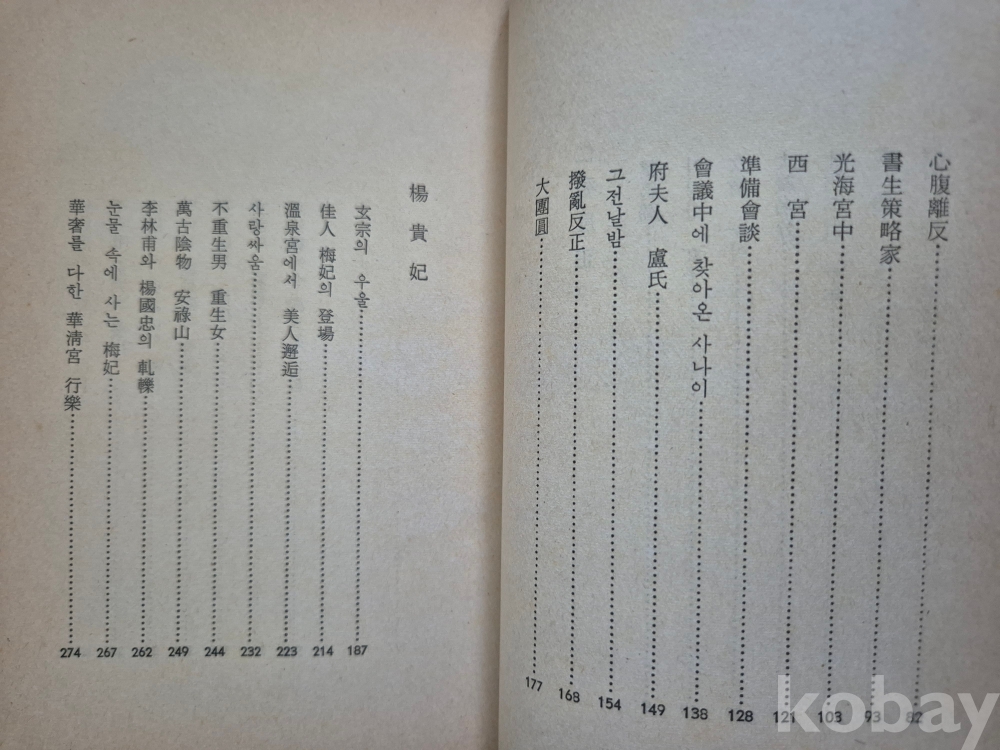 心腹離反 82
書生策略家 93
光海宮中 103
西宮 121
準備會談 128
會議中에 찾아온 사나이 138
府夫人 盧氏 149
그전날밤 154
撥亂反正 168
大團圓 177
楊貴妃
玄宗의 우울 187
佳人 梅妃의 登場 214
溫泉宮에서 美人邂逅 223
사랑싸움 232
不重生男 重生女 244
萬古陰物 安祿山 249
李林甫와 楊國忠의 軋轢 262
눈물 속에 사는 梅妃 267
華奢를 다한 華淸宮 行樂 274
kobay